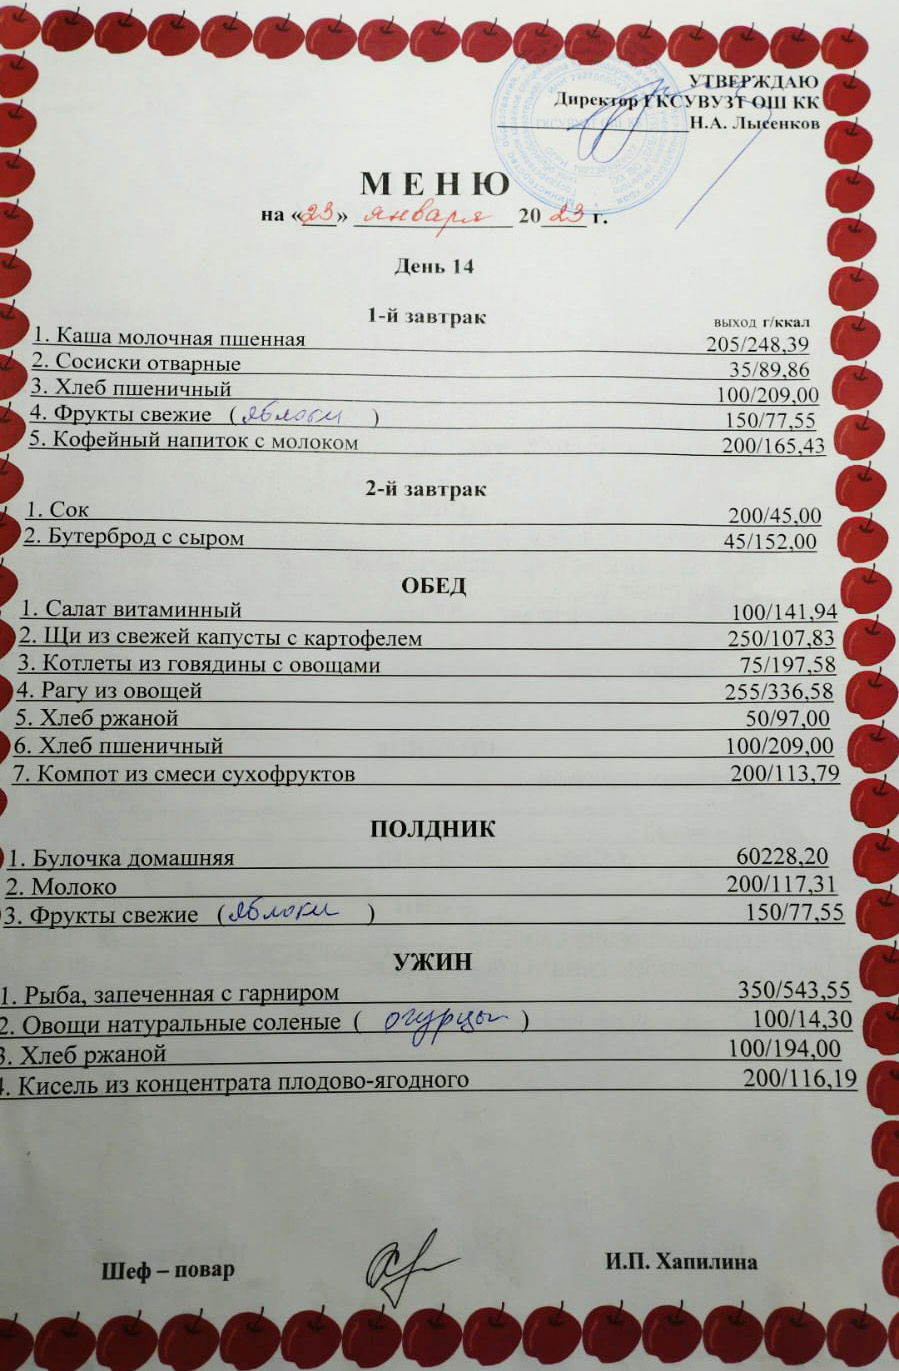 УТВЕРЖДАЮ
Директор ГКСУВУЗТ ОШ КК
Н.А. Лысенков
МЕНЮ
на «23» января 2023 г.
День 14
1-й завтрак
выход г/ккал
1. Каша молочная пшенная 205/248,39
2. Сосиски отварные 35/89,86
3. Хлеб пшеничный 100/209,00
4. Фрукты свежие (яблоки) 150/77,55
5. Кофейный напиток с молоком 200/165,43
2-й завтрак
1. Сок 200/45,00
2. Бутерброд с сыром 45/152,00
ОБЕД
1. Салат витаминный 100/141,94
2. Щи из свежей капусты с картофелем 250/107,83
3. Котлеты из говядины с овощами 75/197,58
4. Рагу из овощей 255/336,58
5. Хлеб ржаной 50/97,00
6. Хлеб пшеничный 100/209,00
7. Компот из смеси сухофруктов 200/113,79
ПОЛДНИК
1. Булочка домашняя 60228,20
2. Молоко 200/117,31
3. Фрукты свежие (яблоки) 150/77,55
УЖИН
1. Рыба, запеченная с гарниром 350/543,55
2. Овощи натуральные соленые (огурцы) 100/14,30
3. Хлеб ржаной 100/194,00
4. Кисель из концентрата плодово-ягодного 200/116,19
Шеф – повар И.П. Хапилина